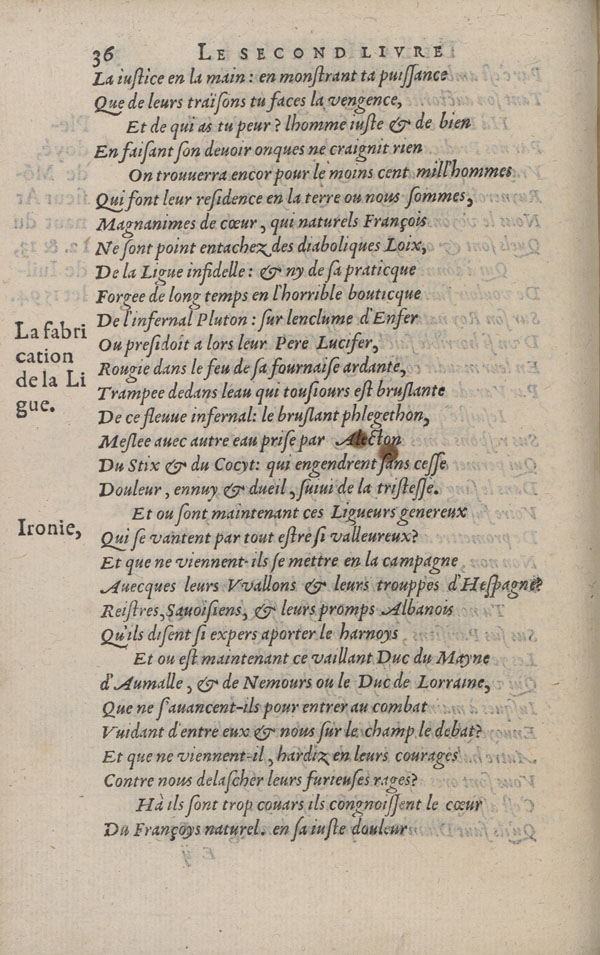 36 LE SECOND LIVRE
La iustice en la main : en monstrant ta puissance
Que de leurs traïsons tu faces la vengence,
Et de qui as tu peur ? lhomme iuste & de bien
En faisant son devoir onques ne craignit rien
On trouuerra encor pour le moins cent mill'hommes
Qui font leur residence en la terre ou nous sommes,
Magnanimes de cœur, qui naturels François
Ne sont point entachez des diaboliques Loix,
De la Ligue infidelle : & ny de sa praticque
Forgee de long temps en l'horrible bouticque
De l'infernal Pluton : sur lenclume d'Enfer
Ou presidoit a lors leur Pere Lucifer,
La fabri
cation
de la Li
gue.
Rougie dans le feu de sa fournaise ardante,
Trampee dedans leau qui tousiours est bruslante
De ce fleuue infernal: le bruslant phlegethon,
Meslee auec autre eau prise par Alecton
Du Stix & du Cocyt: qui engendrent sans cesse
Douleur, ennuy & dueil, suiui de la tristesse.
Et ou sont maintenant ces Ligueurs genereux
Ironie,
Qui se vantent par tout estre si valleureux?
Et que ne viennent-ils se mettre en la campagne
Auecques leurs Vvallons & leurs trouppes d'Hespagne?
Reistres, Sauoisiens, & leurs promps Albanois
Qu'ils disent si expers aporter le harnoys
Et ou est maintenant ce vaillant Duc du Mayne
d'Aumalle, & de Nemours ou le Duc de Lorraine,
Que ne s'auancent-ils pour entrer au combat
Vuidant d'entre eux & nous sur le champ le debat?
Et que ne viennent-il, hardiz en leurs courages
Contre nous delascher leurs furieuses rages?
Hà ils sont trop couars ils congnoissent le cœur
Du Françoys naturel. en sa iuste douleur